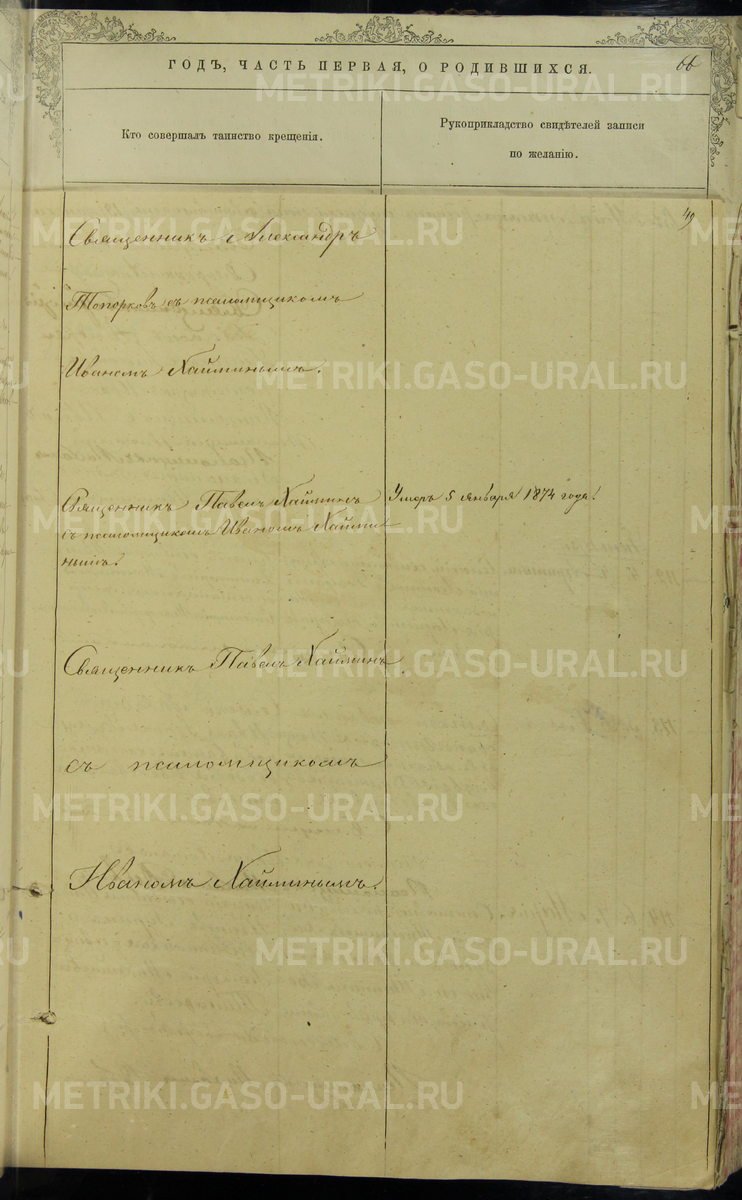 ГОДЪ, ЧАСТЬ ПЕРВАЯ, О РОДИВШИХСЯ.
66
Кто совершалъ таинство крещенія.
Рукоприкладство свидѣтелей записи
по желанію.
49
Священникъ Александръ
Топорковъ съ псаломщикомъ
Иваномъ Хайминымъ.
Священникъ Павелъ Хайминъ
съ псаломщикомъ Иваномъ Хайми
нымъ.
Умеръ 5 января 1874 года.
Священникъ Павелъ Хайминъ
съ псаломщикомъ
Иваномъ Хайминымъ.
METRIKI.GASO-URAL.RU